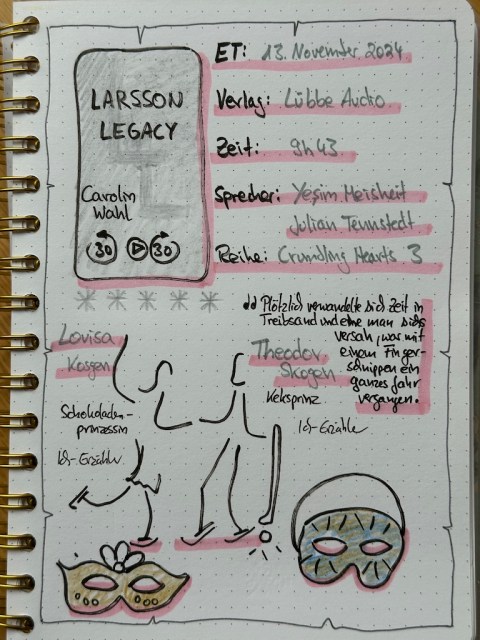 LARSSON
LEGACY
Carolin
Wahl
30 30
ET: 13. November 2024
Verlag: Lübbe Audio
Zeit: 9h 43
Sprecher: Yeşim Meisheit
Julian Tennstedt
Reihe: Crumbling Hearts 3
Plötzlich verwandelte sich Zeit in
Treibsand und ehe man sichs
versah, war mit
einem Finger-
schnippen ein
ganzes Jahr
vergangen.
Lovisa
Schokoladen-
prinzessin
Ich-Erzähler
Theodor
Skogen
Keksprinz
Ich-Erzähler